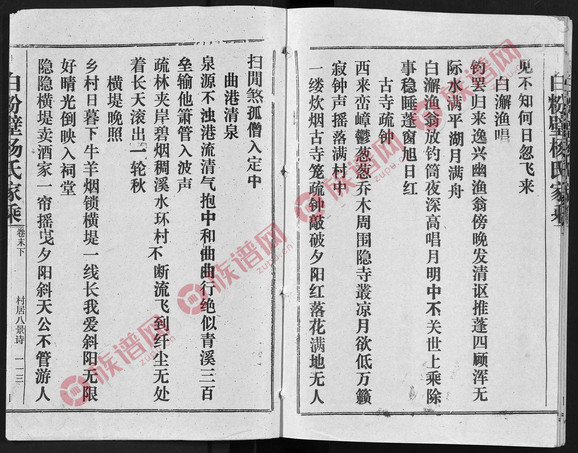 白粉壁杨氏家乘
见不知何日忽飞来
白澥渔唱
钓罢归来逸兴幽渔翁傍晚发清讴推蓬四顾浑无
际水满平湖月满舟
白澥渔翁放钓筒夜深高唱月明中不关世上乘除
事稳睡蓬窗旭日红
古寺疏钟
西来峦嶂鬱葱葱乔木周围隐寺丛凉月欲低万籁
寂钟声摇落满村中
一缕炊烟古寺笼疏钟敲破夕阳红落花满地无人
扫閒煞孤僧入定中
曲港清泉
泉源不浊港流清气抱中和曲曲行绝似青溪三百
垒输他箫管入波声
疏林夹岸碧烟稠溪水环村不断流飞到纤尘无处
着长天滚出一轮秋
横堤晚照
乡村日暮下牛羊烟锁横堤一线长我爱斜阳无限
好晴光倒映入祠堂
隐隐横堤卖酒家一帘摇曵夕阳斜天公不管游人
白粉壁杨氏家乘
卷末下
村居八景诗
一一三
族谱网
zupu.cn
族谱网
zupu.cn